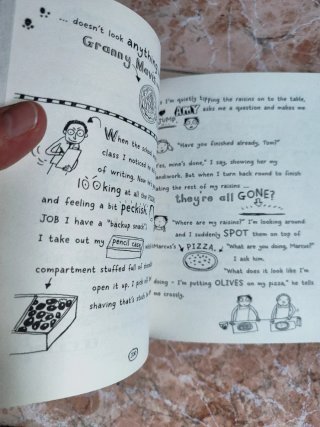 ... doesn't look anything
Granny Mavis
When the school
class I noticed
of writing. Now
looking at all the
and feeling a bit peckish
JOB I have a "backup snack".
I take out my pencil case
compartment stuffed full of
open it up. I pick
shaving that's stuck
I'm quietly tipping the raisins on to the table,
JUMP. AMY asks me a question and makes me
"Have you finished already, Tom?"
mine's done," I say, showing her my
But when I turn back round to finish
the rest of my raisins ...
they're all GONE?
"Where are my raisins?" I'm looking around
and I suddenly SPOT them on top of
Marcus's PIZZA. "What are you doing, Marcus?"
I ask him.
"What does it look like I'm
doing - I'm putting OLIVES on my pizza," he tells
me crossly.